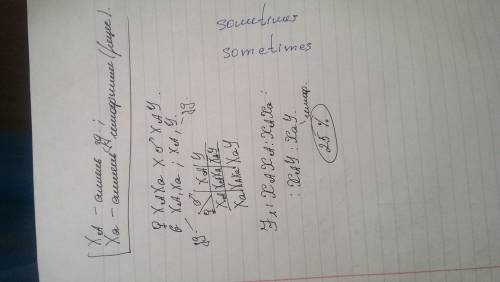 sometimes
sometimes
XA – аллель зд.;
Xa – аллель гемофилии (рецес.).
♀ XAXa x ♂ XAY
G XA, Xa ; XA, Y
зд. зд.
♀ ♂ XA Y
XA XAXA XAY
Xa XAXa XaY
F1: XAXA : XAXa :
: XAY : XaY
гемоф.
25 %